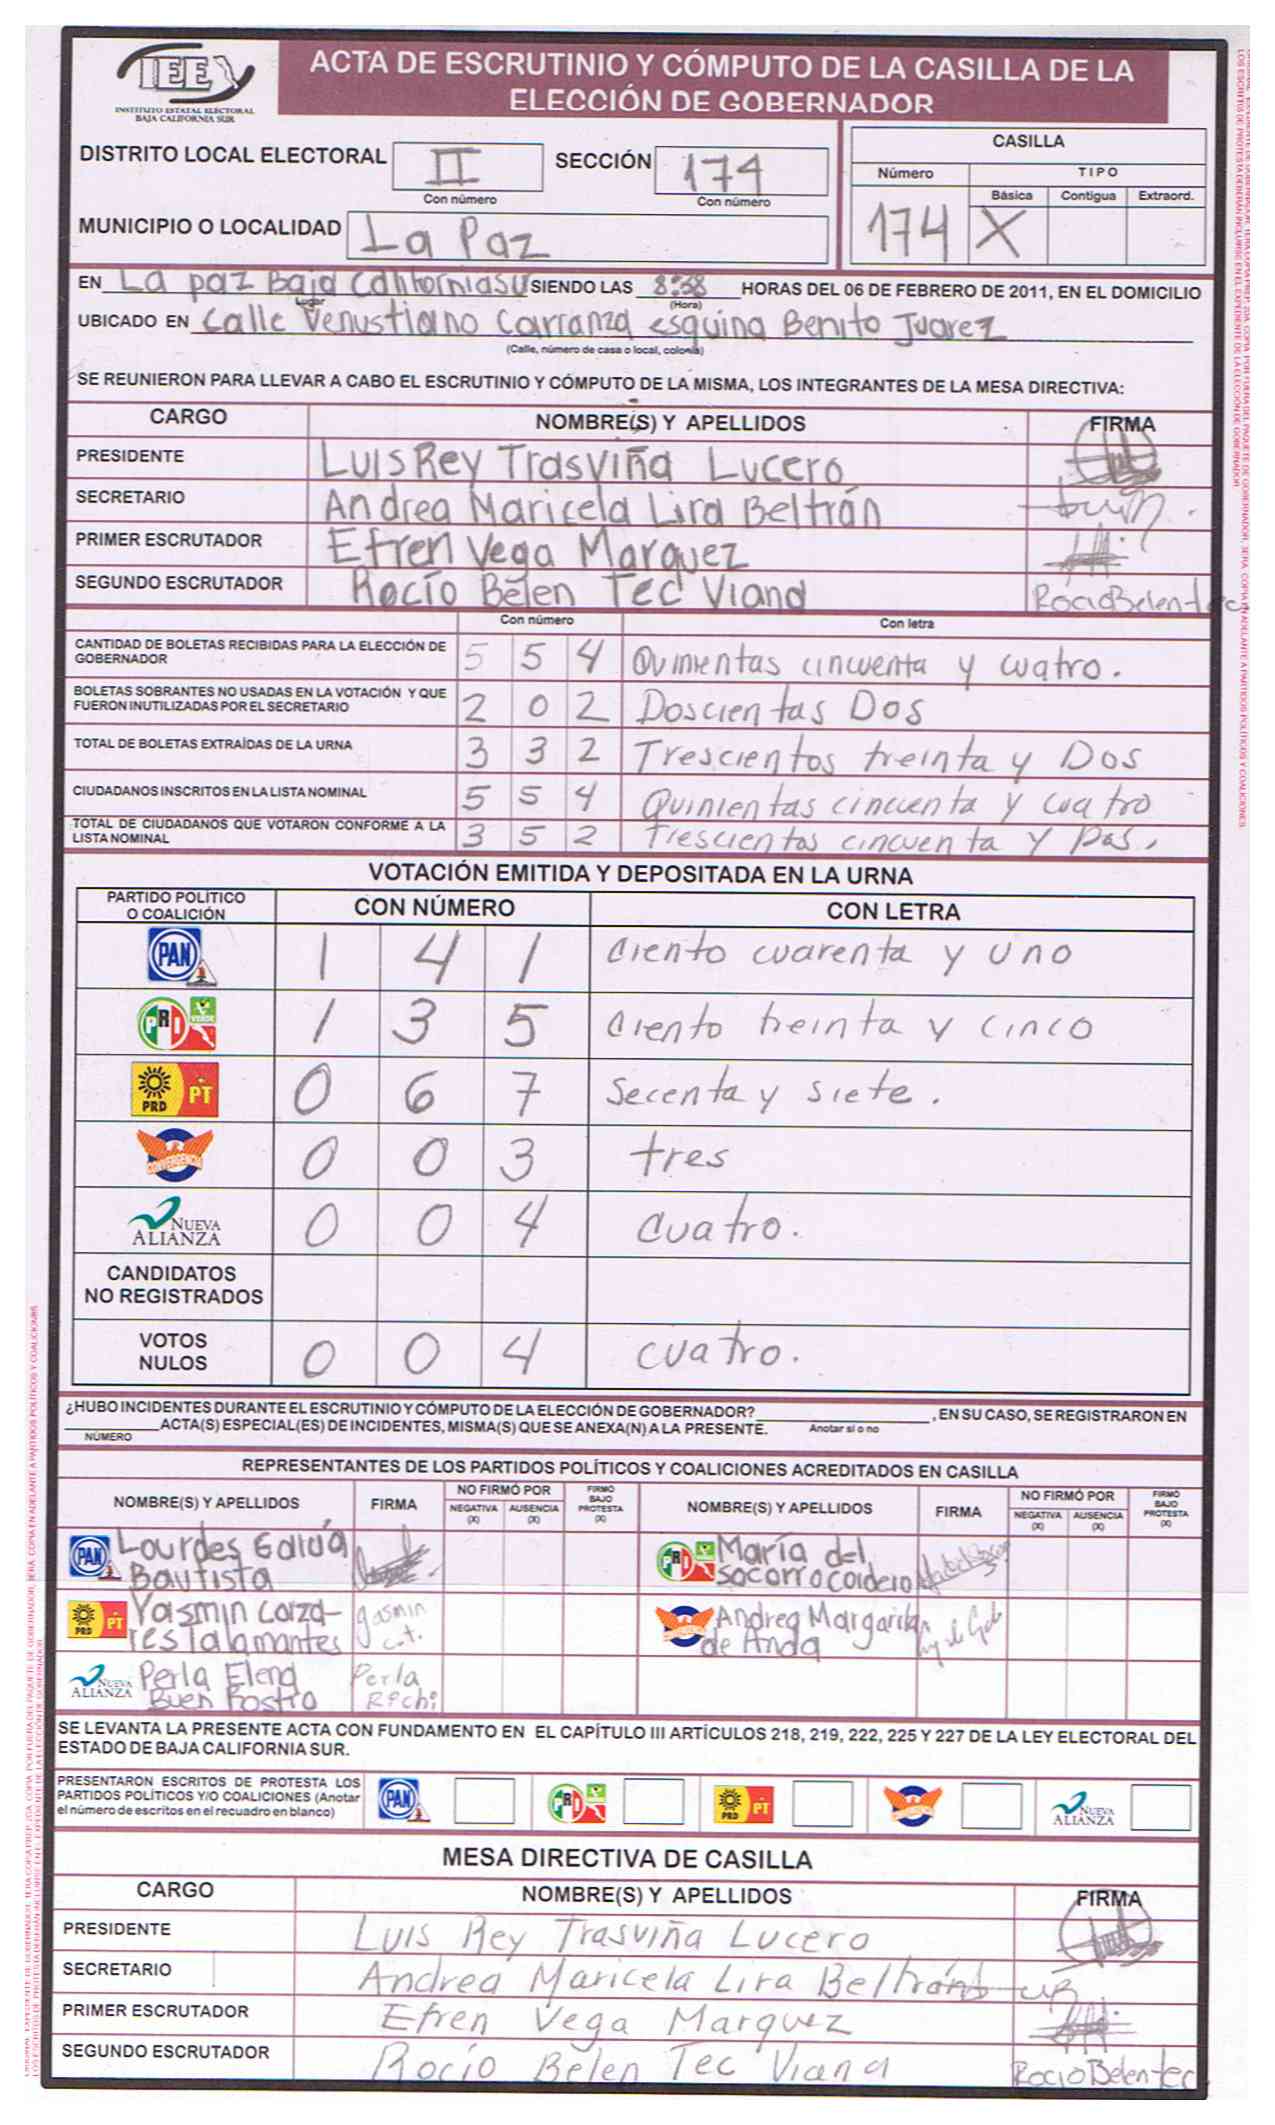 IEE
INSTITUTO ESTATAL ELECTORAL
BAJA CALIFORNIA SUR
ACTA DE ESCRUTINIO Y CÓMPUTO DE LA CASILLA DE LA
ELECCIÓN DE GOBERNADOR
DISTRITO LOCAL ELECTORAL II SECCIÓN 174
Con número Con número
MUNICIPIO O LOCALIDAD La Paz
CASILLA
Número TIPO
Básica Contigua Extraord.
174 X
EN La paz Baja California sur SIENDO LAS 8:38 HORAS DEL 06 DE FEBRERO DE 2011, EN EL DOMICILIO
Lugar (Hora)
UBICADO EN calle Venustiano Carranza esquina Benito Juarez
(Calle, número de casa o local, colonia)
SE REUNIERON PARA LLEVAR A CABO EL ESCRUTINIO Y CÓMPUTO DE LA MISMA, LOS INTEGRANTES DE LA MESA DIRECTIVA:
CARGO NOMBRE(S) Y APELLIDOS FIRMA
PRESIDENTE Luis Rey Trasviña Lucero
SECRETARIO Andrea Maricela Lira Beltrán
PRIMER ESCRUTADOR Efren Vega Marquez
SEGUNDO ESCRUTADOR Rocío Belen Tec Viana Rocio Belen tec
Con número Con letra
CANTIDAD DE BOLETAS RECIBIDAS PARA LA ELECCIÓN DE
GOBERNADOR 5 5 4 Quinientas cincuenta y cuatro.
BOLETAS SOBRANTES NO USADAS EN LA VOTACIÓN Y QUE
FUERON INUTILIZADAS POR EL SECRETARIO 2 0 2 Doscientas Dos
TOTAL DE BOLETAS EXTRAÍDAS DE LA URNA 3 3 2 Trescientos treinta y Dos
CIUDADANOS INSCRITOS EN LA LISTA NOMINAL 5 5 4 Quinientas cincuenta y cuatro
TOTAL DE CIUDADANOS QUE VOTARON CONFORME A LA
LISTA NOMINAL 3 5 2 trescientos cincuenta y Dos.
VOTACIÓN EMITIDA Y DEPOSITADA EN LA URNA
PARTIDO POLÍTICO
O COALICIÓN CON NÚMERO CON LETRA
PAN 1 4 1 ciento cuarenta y uno
PRI VERDE 1 3 5 ciento treinta y cinco
PRD PT 0 6 7 Secenta y siete.
CONVERGENCIA 0 0 3 tres
NUEVA
ALIANZA 0 0 4 cuatro.
CANDIDATOS
NO REGISTRADOS
VOTOS
NULOS 0 0 4 cuatro.
¿HUBO INCIDENTES DURANTE EL ESCRUTINIO Y CÓMPUTO DE LA ELECCIÓN DE GOBERNADOR? , EN SU CASO, SE REGISTRARON EN
ACTA(S) ESPECIAL(ES) DE INCIDENTES, MISMA(S) QUE SE ANEXA(N) A LA PRESENTE. Anotar si o no
NÚMERO
REPRESENTANTES DE LOS PARTIDOS POLÍTICOS Y COALICIONES ACREDITADOS EN CASILLA
NOMBRE(S) Y APELLIDOS FIRMA NO FIRMÓ POR NEGATIVA (X) AUSENCIA (X) FIRMÓ BAJO PROTESTA (X) NOMBRE(S) Y APELLIDOS FIRMA NO FIRMÓ POR NEGATIVA (X) AUSENCIA (X) FIRMÓ BAJO PROTESTA (X)
PAN Lourdes Garcia PRI María del
Bautista Socorro Cordero
PRD PT Yasmin Caza- Yasmin Andrea Margarita
res Talamantes c.t. de Anda
NUEVA ALIANZA Perla Elena Perla
Buen Rostro
SE LEVANTA LA PRESENTE ACTA CON FUNDAMENTO EN EL CAPÍTULO III ARTÍCULOS 218, 219, 222, 225 Y 227 DE LA LEY ELECTORAL DEL
ESTADO DE BAJA CALIFORNIA SUR.
PRESENTARON ESCRITOS DE PROTESTA LOS
PARTIDOS POLÍTICOS Y/O COALICIONES (Anotar
el número de escritos en el recuadro en blanco)
PAN PRI PRD PT NUEVA ALIANZA
MESA DIRECTIVA DE CASILLA
CARGO NOMBRE(S) Y APELLIDOS FIRMA
PRESIDENTE Luis Rey Trasviña Lucero
SECRETARIO Andrea Maricela Lira Beltrán
PRIMER ESCRUTADOR Efren Vega Marquez
SEGUNDO ESCRUTADOR Rocío Belen Tec Viana Rocio Belen tec